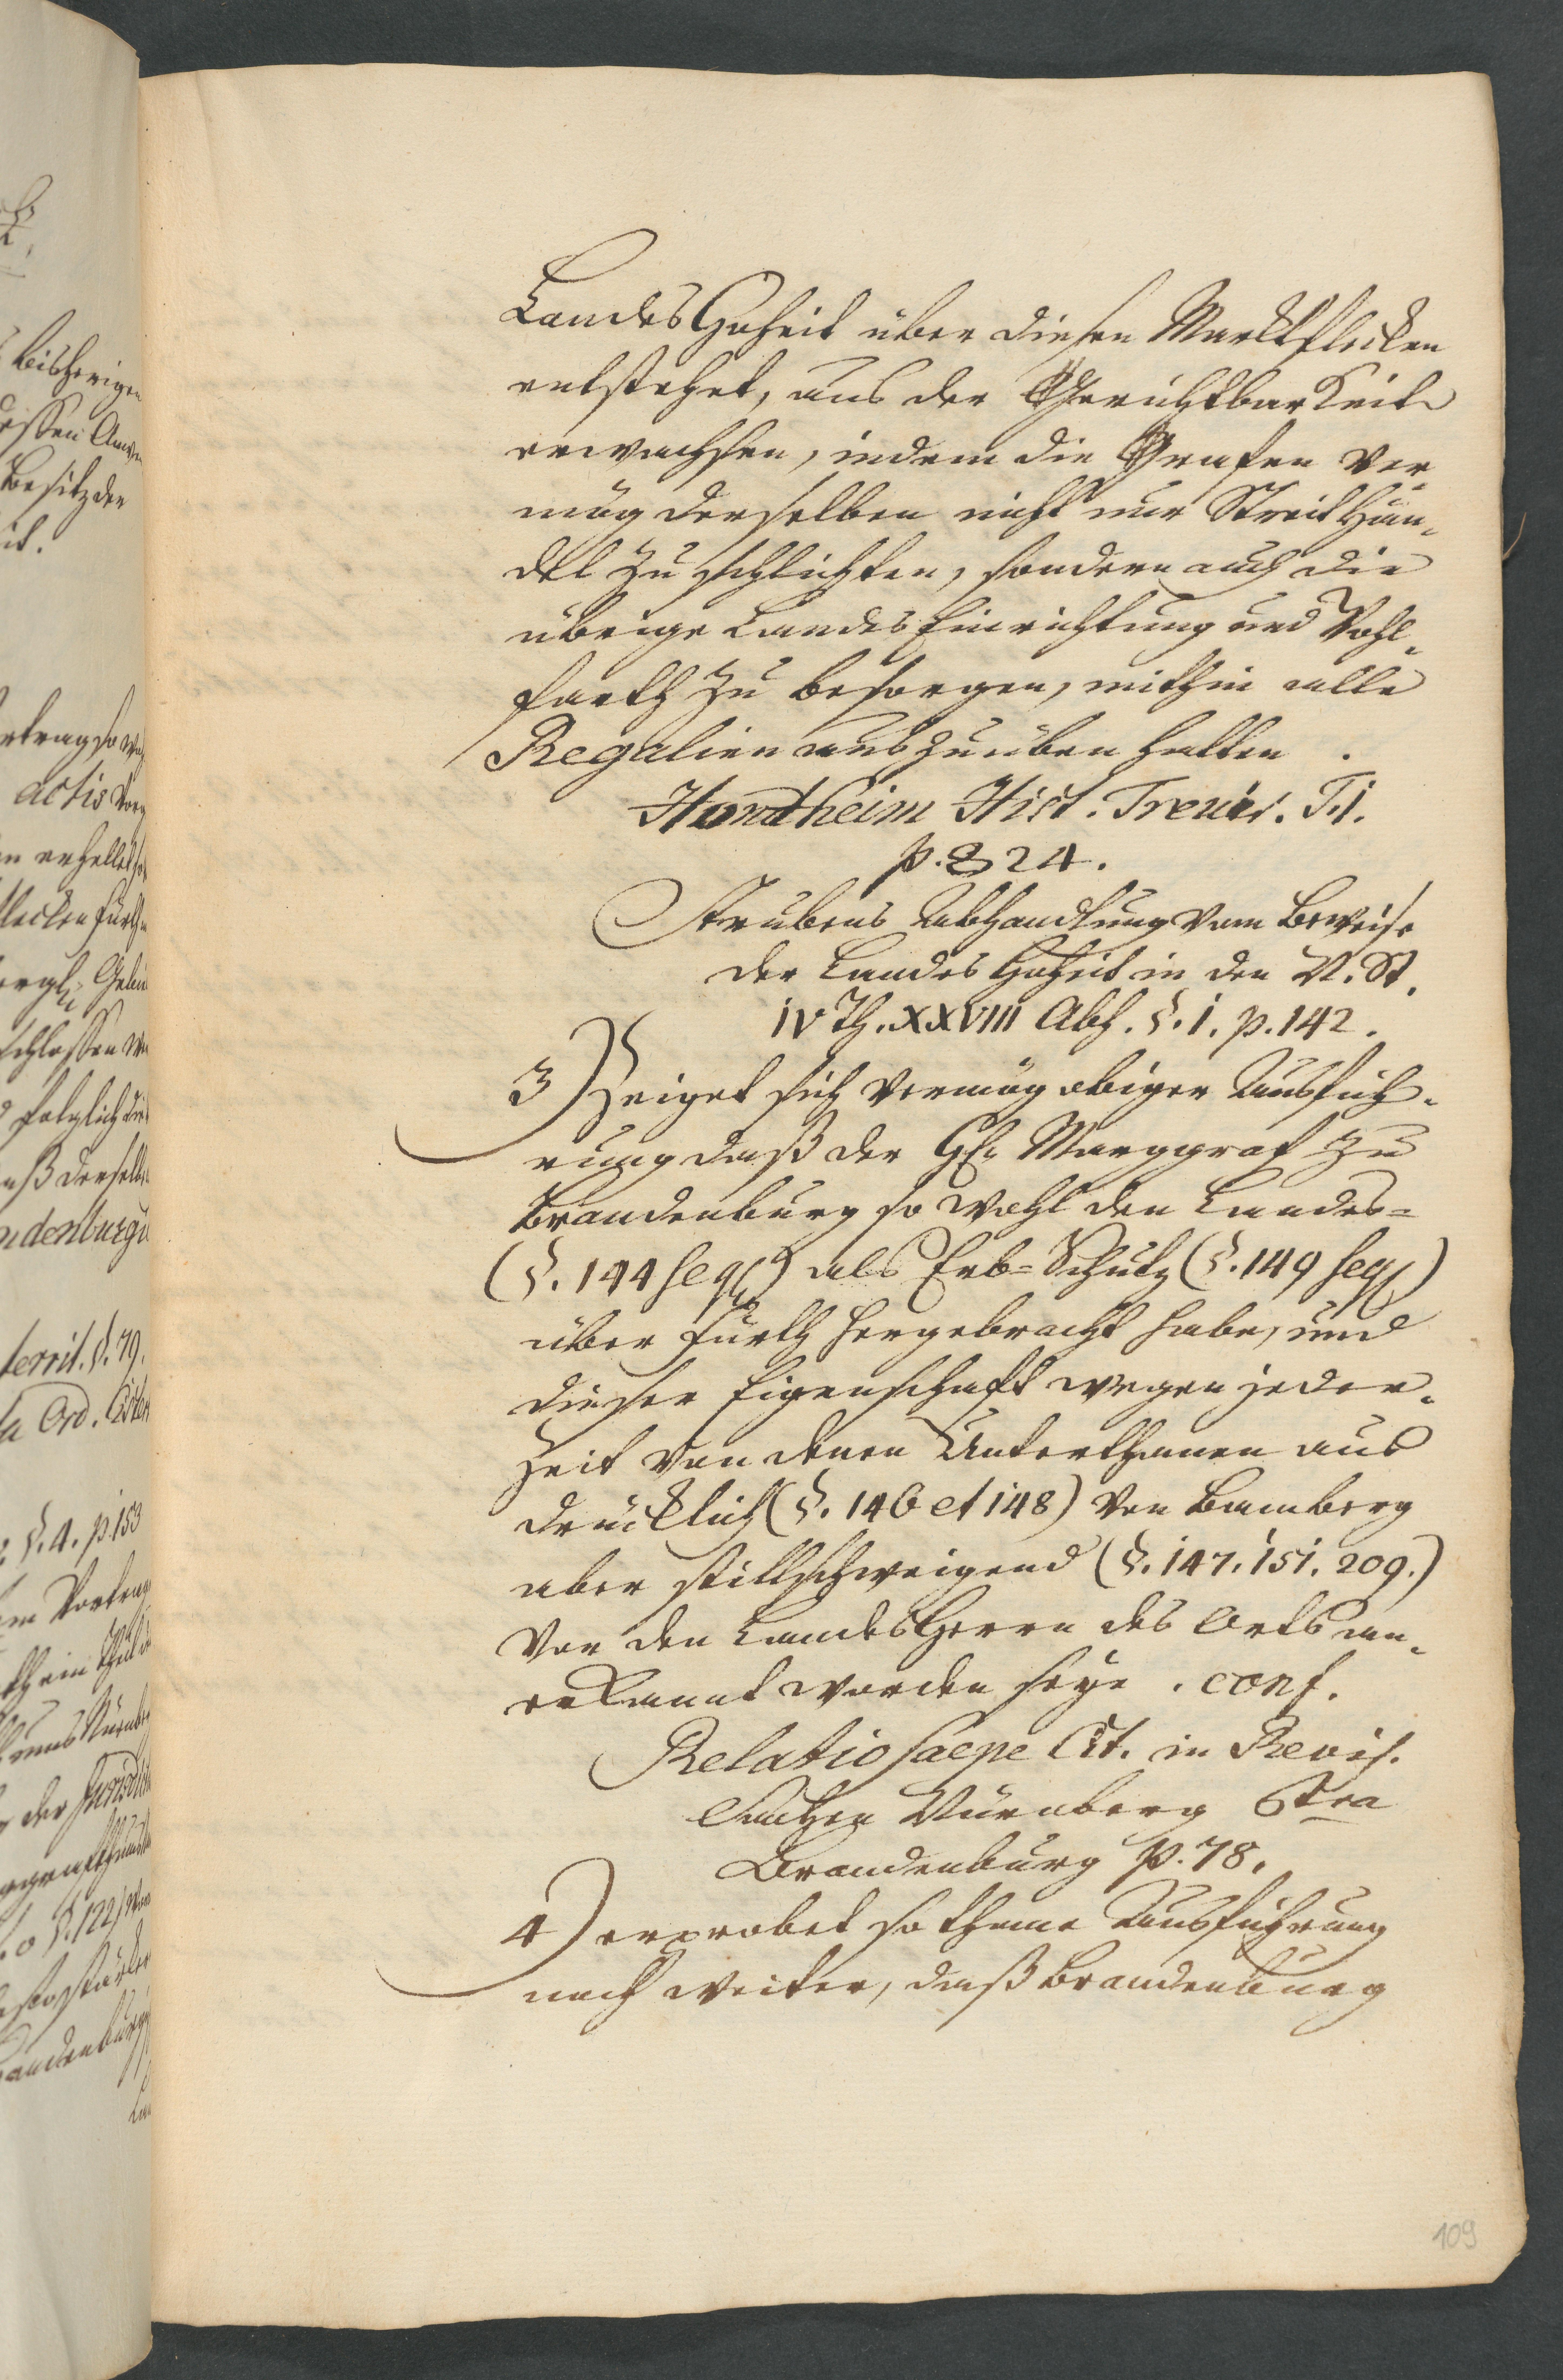 Landes Hoheit über diesen Marktflecken
entstehet, aus der Gerichtbarkeit
erwachsen, indem die Grafen ver¬
mög derselben nicht nur Streit Hän¬
del zu schlichten, sondern auch die
übrige Landes Einrichtung und Wohl¬
farth zu besorgen, mithin alle
Regalien auszuüben hatten .
Hontheim Hist. Trevir. T. I.
p. 824.
Strubens Abhandlung vom Beweise
der Landes Hoheit in den N. St.
IV Th. XXVIII Abh. §. 1. p. 142.
3) Zeiget sich vermög obiger Ausfüh¬
rung daß der H. Marggraf zu
Brandenburg so wohl den Landes=
(§. 144 seqq) als Erb=Schutz (§. 149 seqq)
über Fürth hergebracht habe, und
dieser Eigenschaft wegen jeder¬
zeit von denen Unterthanen aus
drücklich (§. 146 et 148) von Bamberg
aber stillschweigend (§. 147. 151. 209.)
vor den Landes Herrn des Orts an¬
erkannt worden seye . conf.
Relatio saepe Cit. in Revis.
Sachen Nürnberg Ctra
Brandenburg p. 78.
4) erprobet so thane Ausführung
noch weiter, daß Brandenburg
109